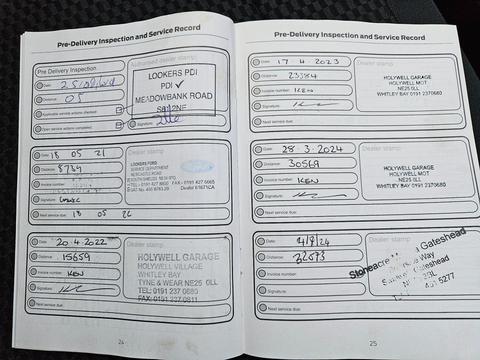 Pre-Delivery Inspection and Service Record
Pre Delivery Inspection
Authorised dealer stamp
Date:
Distance: 05
Applicable service actions checked
Open service actions completed
LOOKERS PDI
PDI ✓
MEADOWBANK ROAD
Signature:
Date: 18 05 21
Distance:
Invoice number:
Signature:
Next service due: 18 05 22
Dealer stamp
LOOKERS FORD
SERVICE DEPARTMENT
NEWCASTLE ROAD
Date: 20.4.2022
Distance: 15659
Invoice number: KEN
Signature:
Next service due:
Dealer stamp
HOLYWELL GARAGE
HOLYWELL VILLAGE
WHITLEY BAY
TYNE & WEAR NE25 0LL
TEL: 0191 237 0680
FAX: 0191 237 0811
24
Pre-Delivery Inspection and Service Record
Date: 17 4 2023
Distance: 23384
Invoice number: KEN
Signature:
Next service due:
Dealer stamp
HOLYWELL GARAGE
HOLYWELL MOT
NE25 0LL
WHITLEY BAY 0191 2370680
Date: 28.3.2024
Distance: 30569
Invoice number: KEN
Signature:
Next service due:
Dealer stamp
HOLYWELL GARAGE
HOLYWELL MOT
NE25 0LL
WHITLEY BAY 0191 2370680
Date:
Distance:
Invoice number:
Signature:
Next service due:
Dealer stamp
Gateshead
25